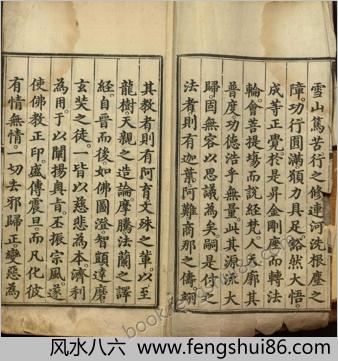 雪山篤苦行之修連河洗根塵之
障功行圓滿頓力具足豁然大悟
成等正覺於是昇金剛座而轉法
輪會菩提場而說經梵人天廓其
普度功德浩乎無量此其源流大
歸固無容以思議為矣嗣是付之
法者則有迦葉阿難商那之儔翊
其教者則有阿育文殊之輩以至
龍樹天親之造論摩騰法蘭之譯
經自晉而後如佛圖澄智顗達磨
玄奘之徒皆以慈悲為本濟利
為用于以闡揚奥旨丕振宗風遂
使佛教正印盛傳震旦而凡化彼
有情無情一切去邪歸正變惡為
風水八六 www.fengshui86.com